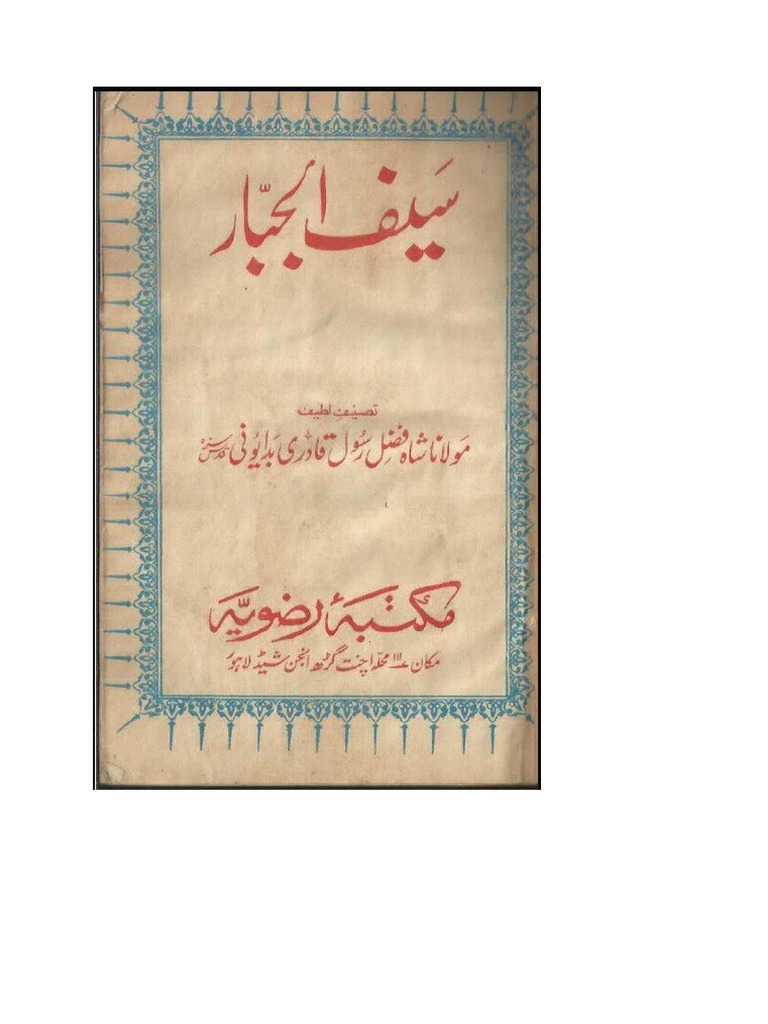 سیف الجبّار
تصنیفِ لطیف
مولانا شاہ فضل رسول قادری بدایونی قدس سرہ
مکتبۂ رضویّہ
مکان ۱۱۷ محلہ اچنت گڑھ انجن شیڈ لاہور